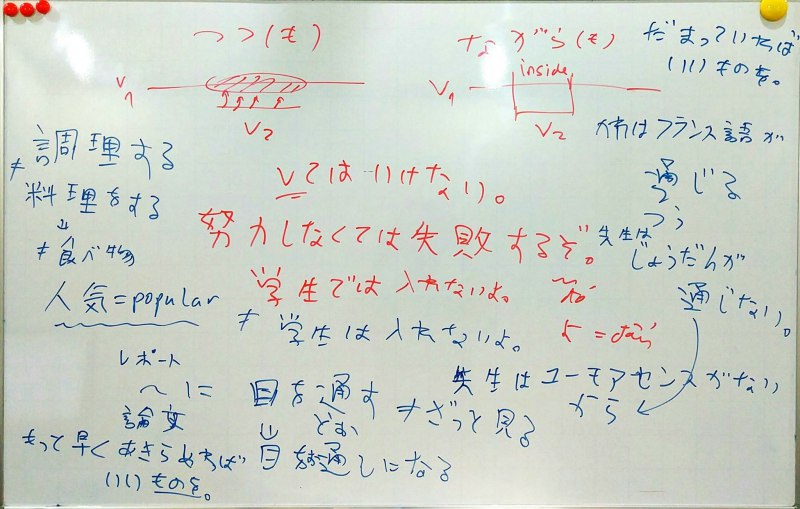 つつ(も)
V1
V2
ながら(も)
inside
V1
V2
だまっていれば
いいものを。
≠調理する
料理をする
≠食べ物
人気=popular
Vてはいけない。
努力しなくては失敗するぞ。
学生では入れないよ。
≠学生は入れないよ。
彼はフランス語が
通じる
つう
先生は
じょうだんが
通じない。
先生はユーモアセンスがない
から
レポート
〜に目を通す
論文
とお
≠ざっと見る
目お通しになる
もって早くあきらめれば
いいものを。